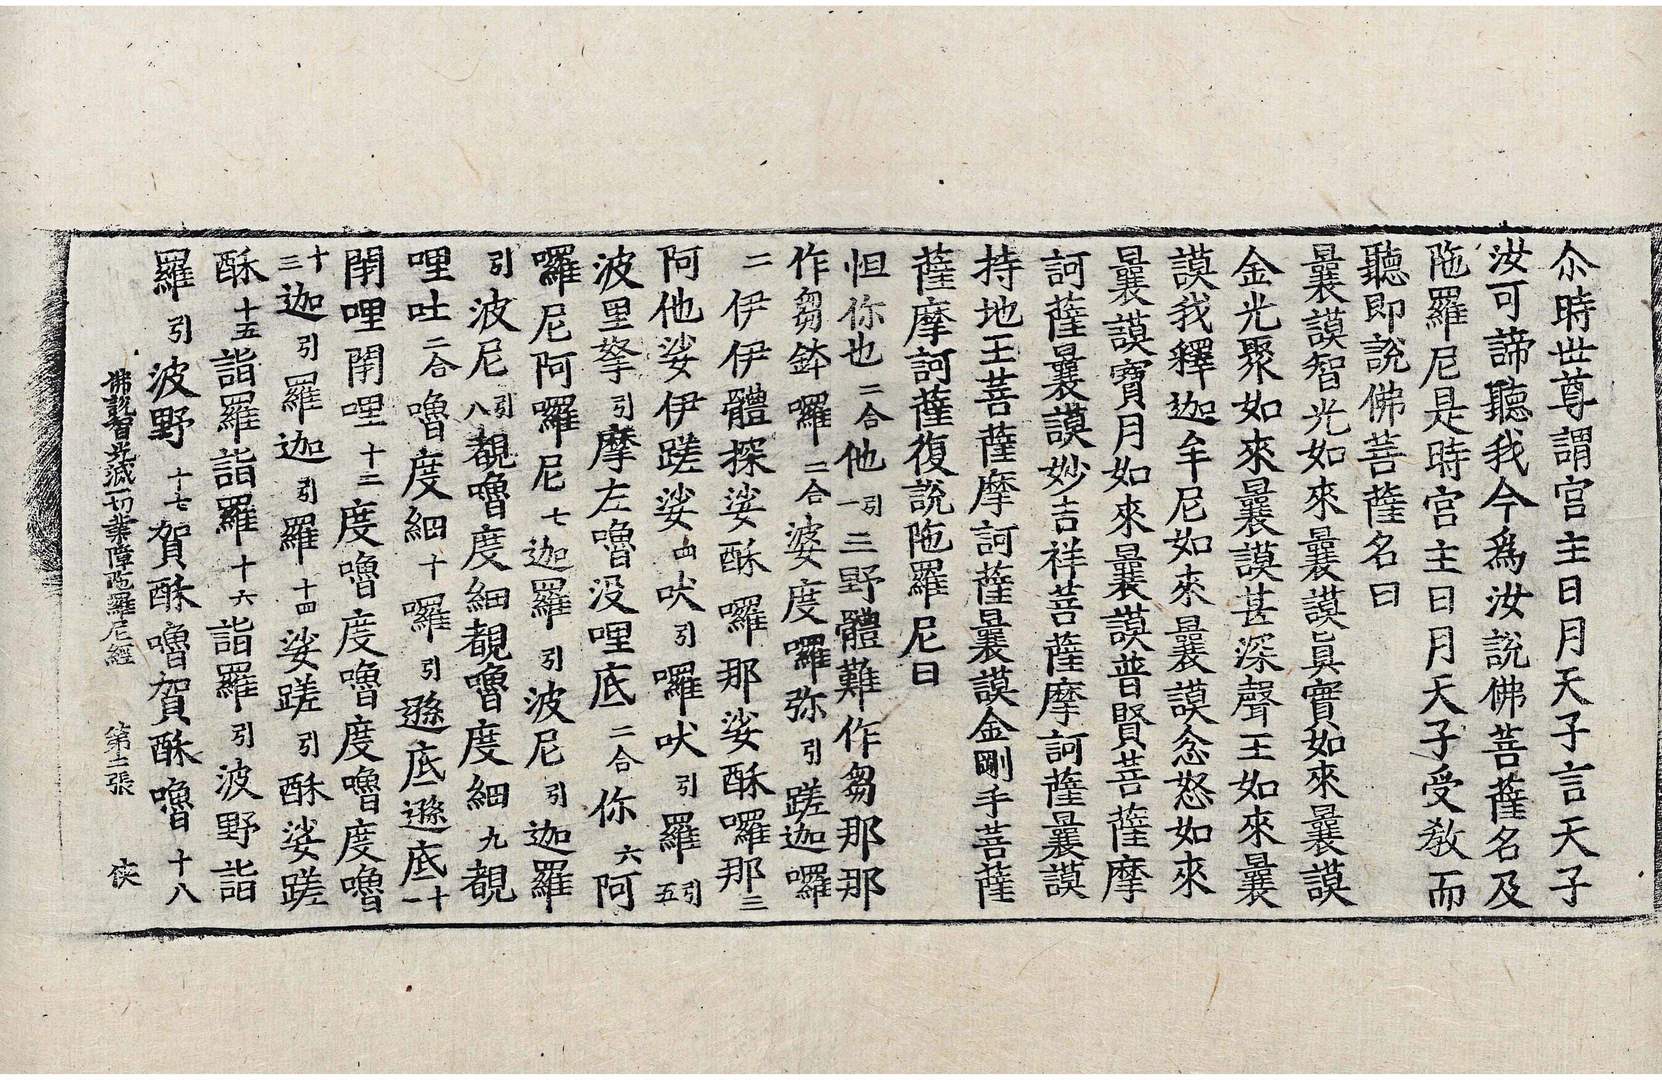 尒時世尊謂宫主日月天子言天子
汝可諦聽我今爲汝說佛菩薩名及
陁羅尼是時宫主日月天子受教而
聽即說佛菩薩名曰
曩謨智光如來曩謨眞實如來曩謨
金光聚如來曩謨甚深聲王如來曩
謨我釋迦牟尼如來曩謨忿怒如來
曩謨寶月如來曩謨普賢菩薩摩
訶薩曩謨妙吉祥菩薩摩訶薩曩謨
持地王菩薩摩訶薩曩謨金剛手菩薩
薩摩訶薩復說陁羅尼曰
怛你也二合他引一三野體難作芻那那
作芻鉢囉二合婆度囉弥引蹉迦囉
二伊伊體探娑酥囉那娑酥囉那三
阿他娑伊蹉娑四吠引囉吠引羅引五
波里拏引摩左嚕没哩底二合你六阿
囉尼阿囉尼七迦羅引波尼引迦羅
引波尼引八覩嚕度細覩嚕度細九覩
哩吐二合嚕度細十囉引遜底遜底十一
閇哩閇哩十二度嚕度嚕度嚕度嚕
十三迦引羅迦引羅十四娑蹉引酥娑蹉
酥十五詣羅詣羅十六詣羅引波野詣
羅引波野十七賀酥嚕賀酥嚕十八
佛說智光滅一切業障陁羅尼經 第二張 俠